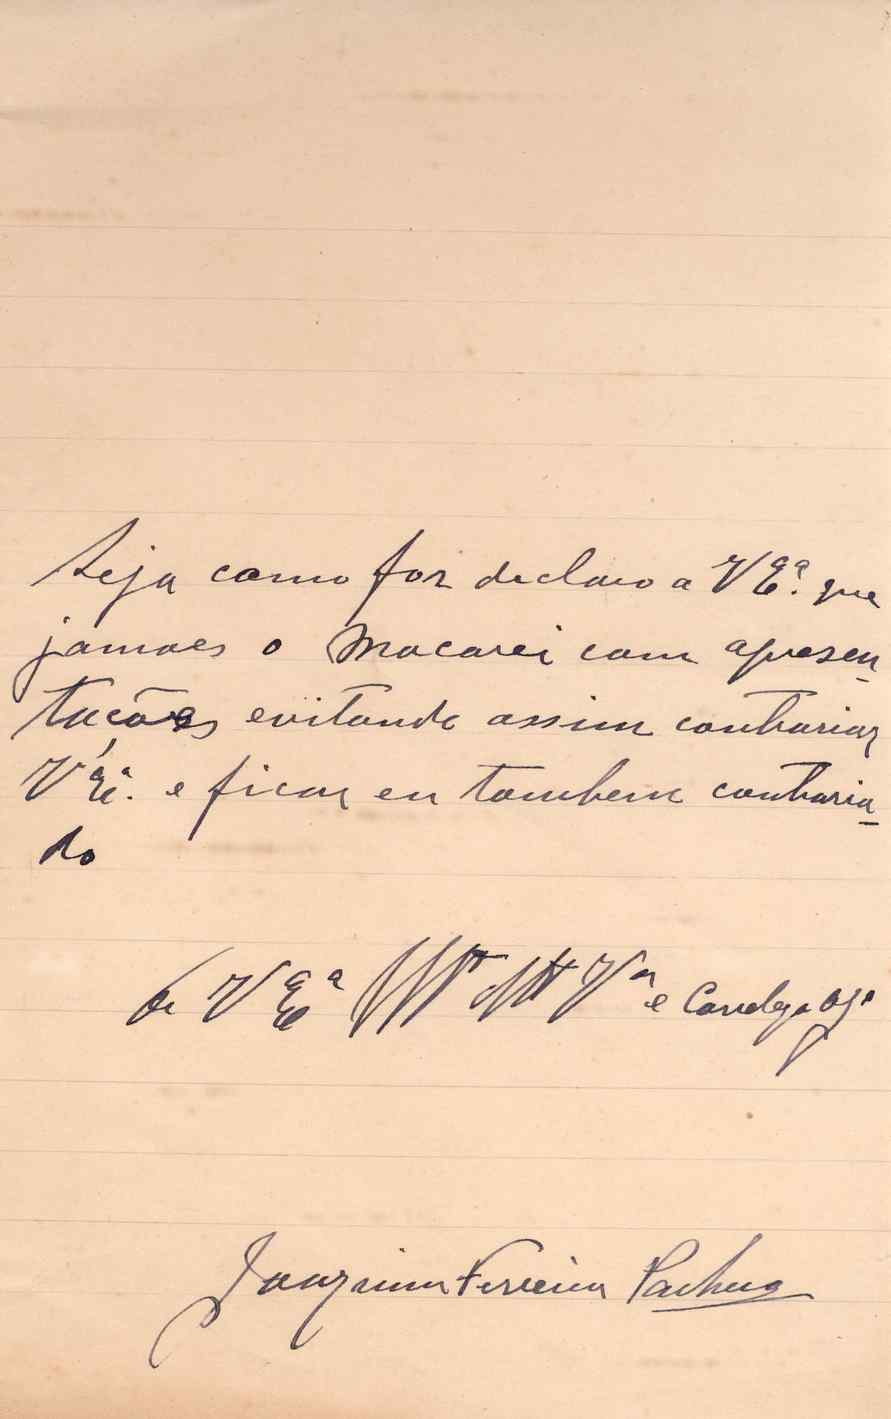 Seja como for declaro a VExª. que
jamaes o macarei com apresen-
tacões evitando assim contrariar
VExª. e ficar eu tambem contraria-
do
De VExª Vor e
Joaquim Ferreira Pacheco